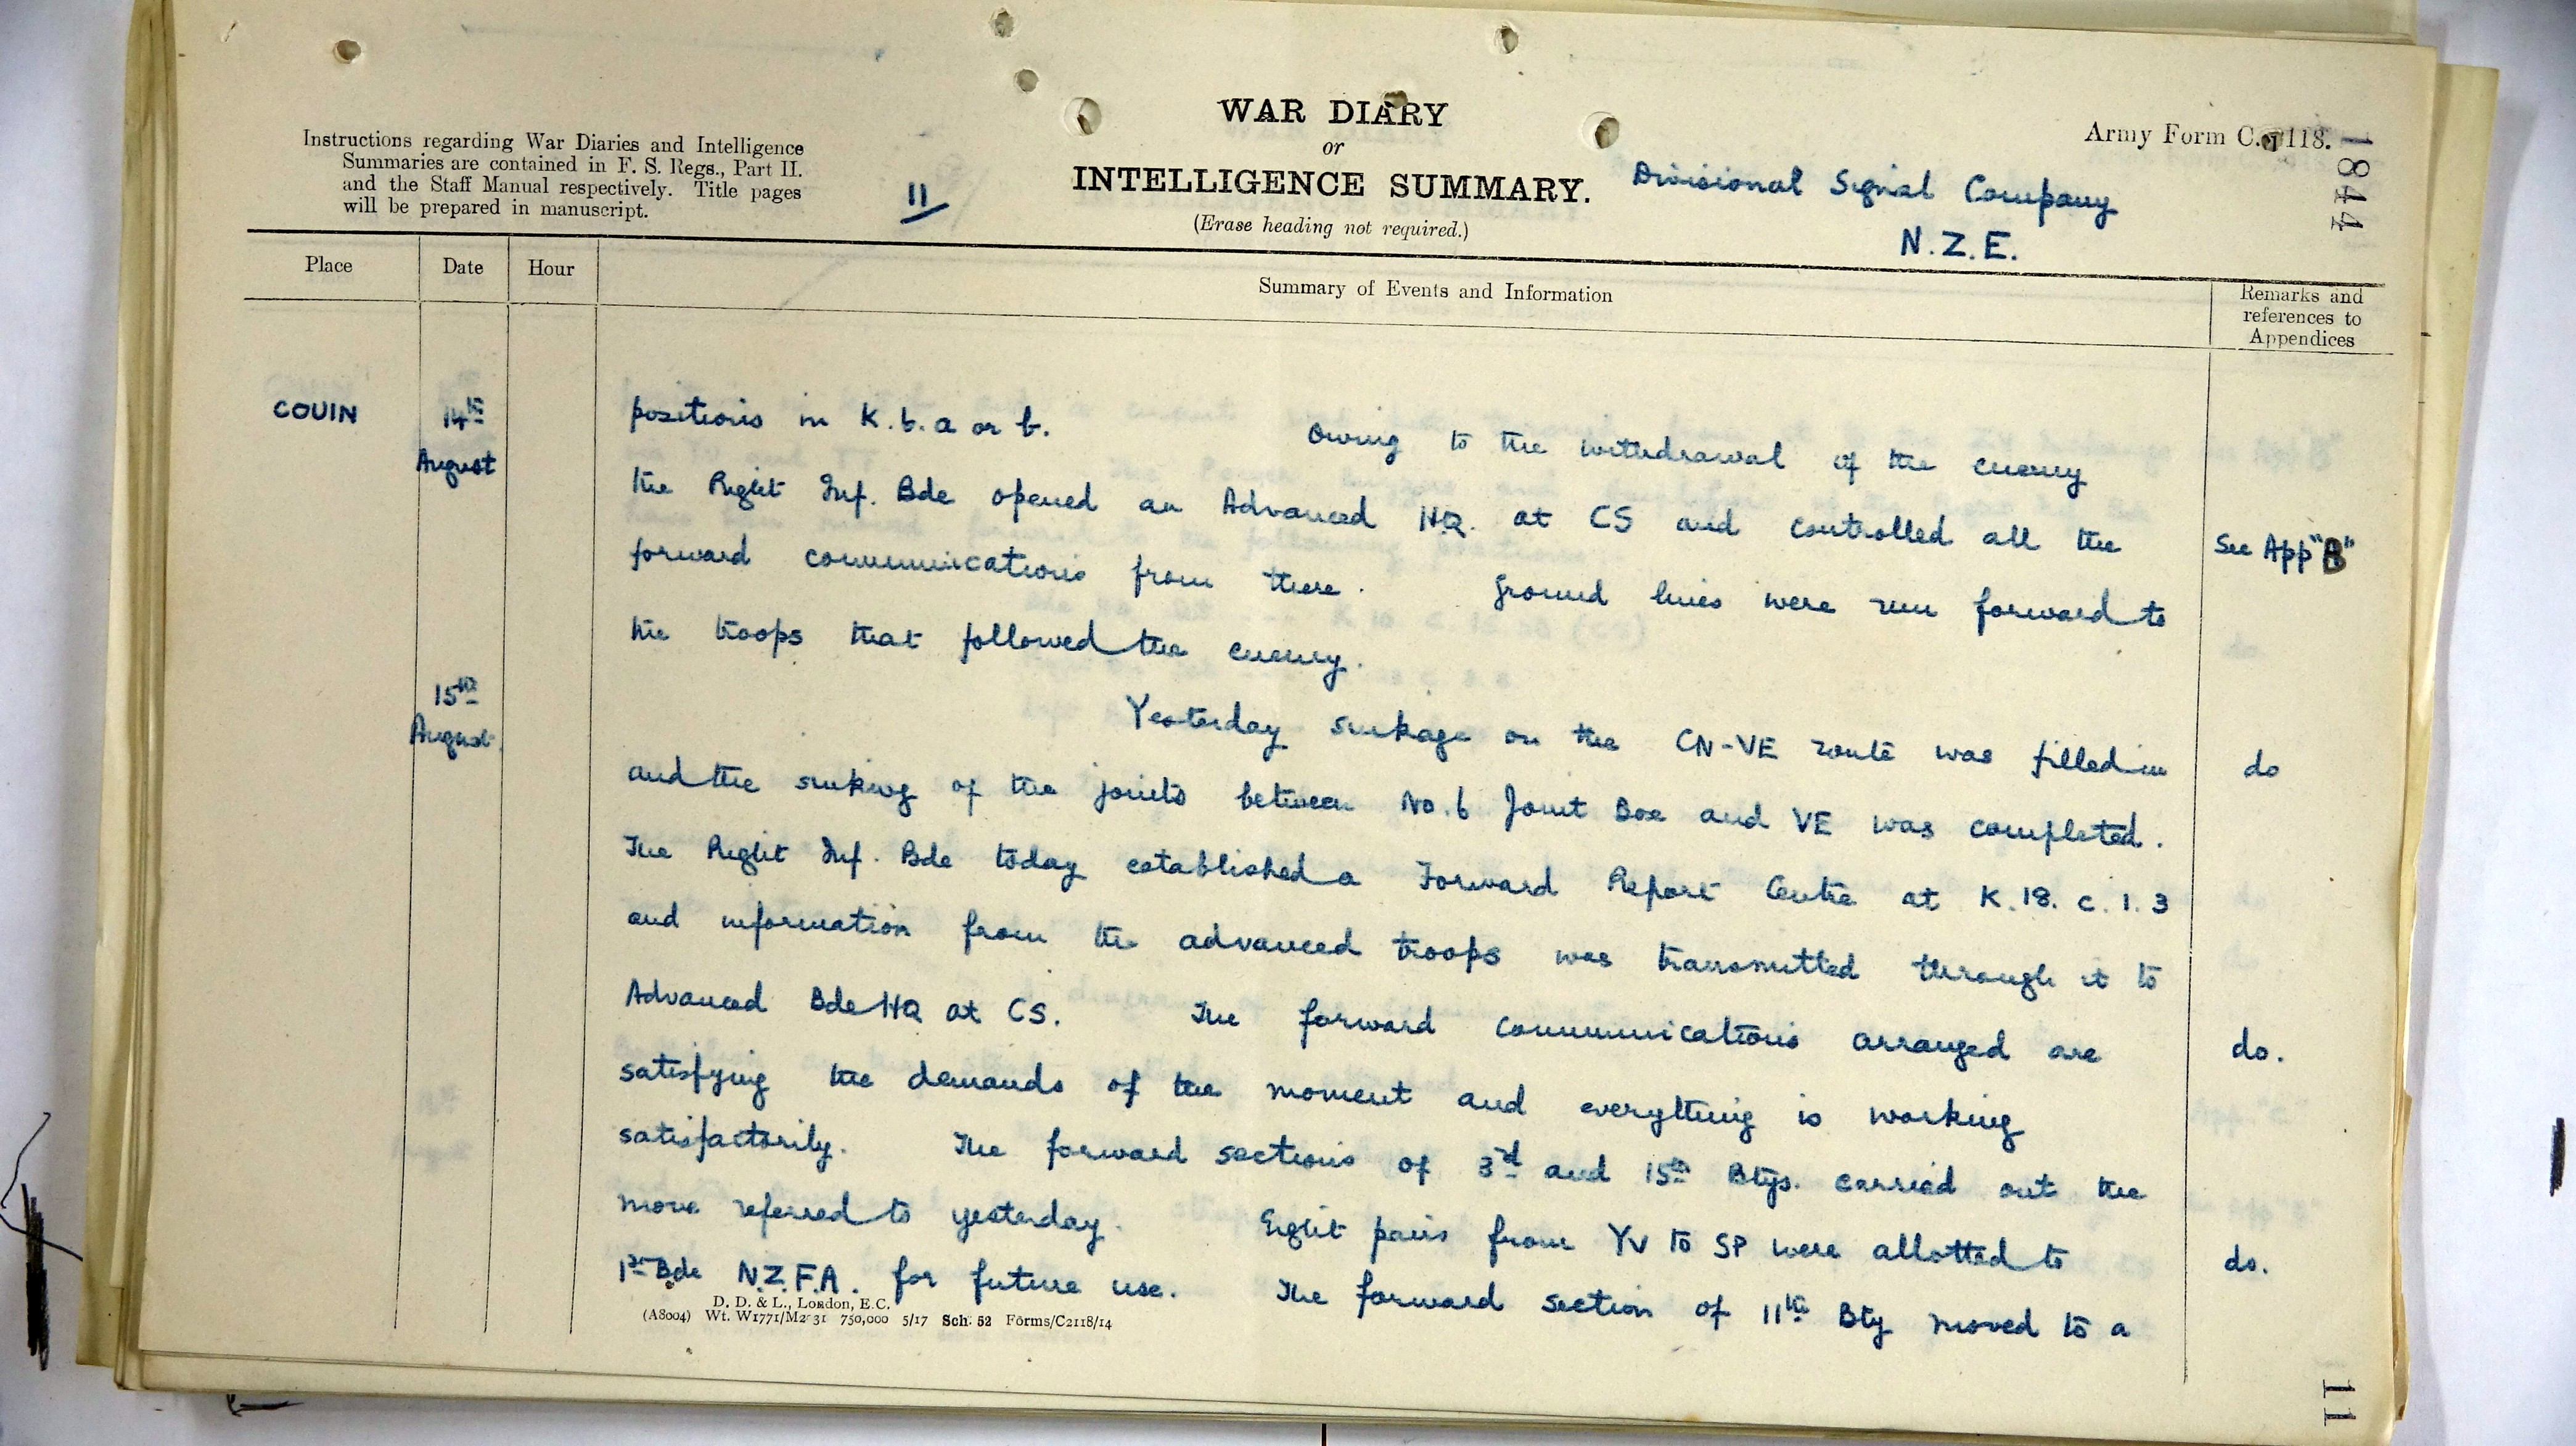 Instructions regarding War Diaries and Intelligence
Summaries are contained in F. S. Regs., Part II.
and the Staff Manual respectively. Title pages
will be prepared in manuscript.
11
WAR DIARY
or
INTELLIGENCE SUMMARY.
(Erase heading not required.)
Army Form C. 2118.
1844
Divisional Signal Company
N.Z.E.
Place Date Hour Summary of Events and Information Remarks and
references to
Appendices
COUIN 14th
August
positions in K.6.a or b. Owing to the withdrawal of the enemy
the Right Inf. Bde opened an Advanced HQ. at CS and controlled all the See App "B"
forward communications from there. Ground lines were run forward to
the troops that followed the enemy.
15th
August
Yesterday sinkage on the CN-VE route was filled in do
and the sinking of the joints between No.6 Joint Box and VE was completed.
The Right Inf. Bde today established a Forward Report Centre at K.18.c.1.3
and information from the advanced troops was transmitted through it to
Advanced Bde HQ at CS. The forward communications arranged are do.
satisfying the demands of the moment and everything is working
satisfactorily. The forward sections of 3rd and 15th Btys. carried out the
move referred to yesterday. Eight pairs from YV to SP were allotted to do.
1st Bde N.Z.F.A. for future use. The forward section of 11th Bty moved to a
D. D. & L., London, E.C.
(A8004) Wt. W1771/M2 31 750,000 5/17 Sch. 52 Forms/C2118/14
11